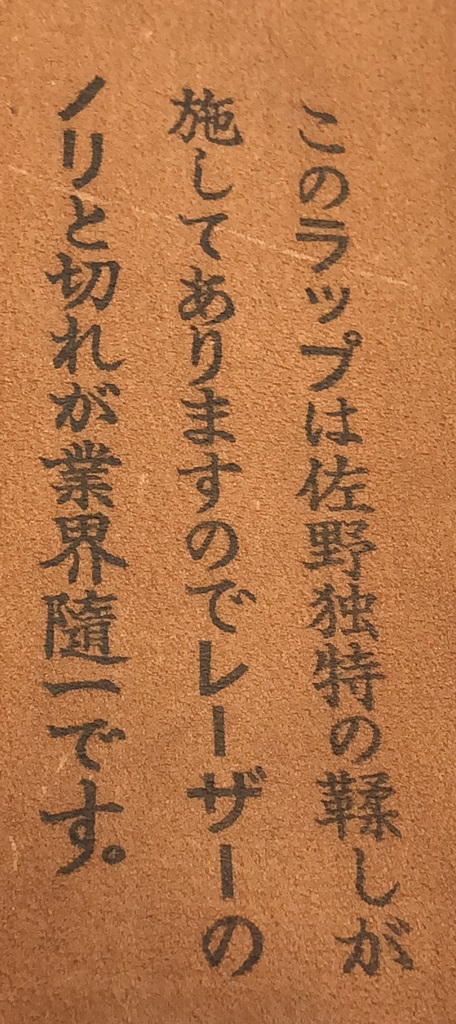 このラップは佐野独特の鞣しが
施してありますのでレーザーの
ノリと切れが業界隨一です。